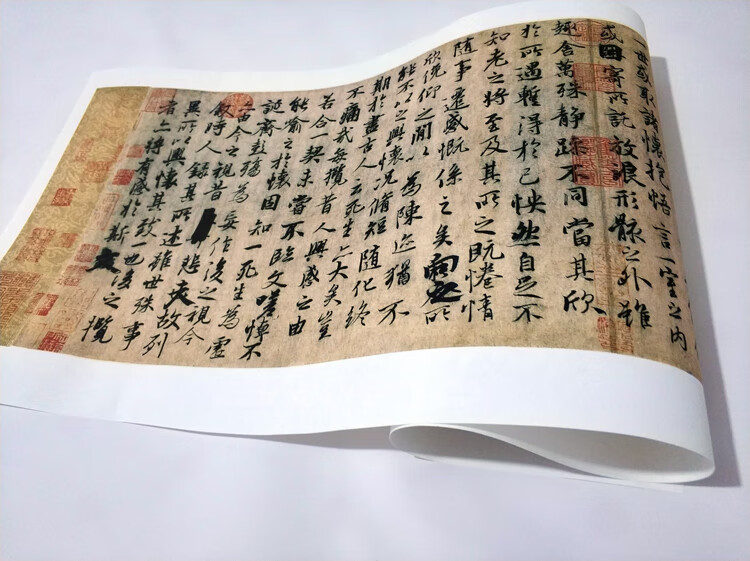 世或取諸懷抱悟言一室之內
或因寄所託放浪形骸之外雖
趣舍萬殊静躁不同當其欣
於所遇蹔得於己怏然自足不
知老之將至及其所之既惓情
隨事遷感慨係之矣向之所
欣俛仰之間以為陳迹猶不
能不以之興懷況脩短隨化終
期於盡古人云死生亦大矣豈
不痛哉每攬昔人興感之由
若合一契未嘗不臨文嗟悼不
能喻之於懷固知一死生為虛
誕齊彭殤為妄作後之視今
亦由今之視昔悲夫故列
敘時人錄其所述雖世殊事
異所以興懷其致一也後之攬
者亦將有感於斯文